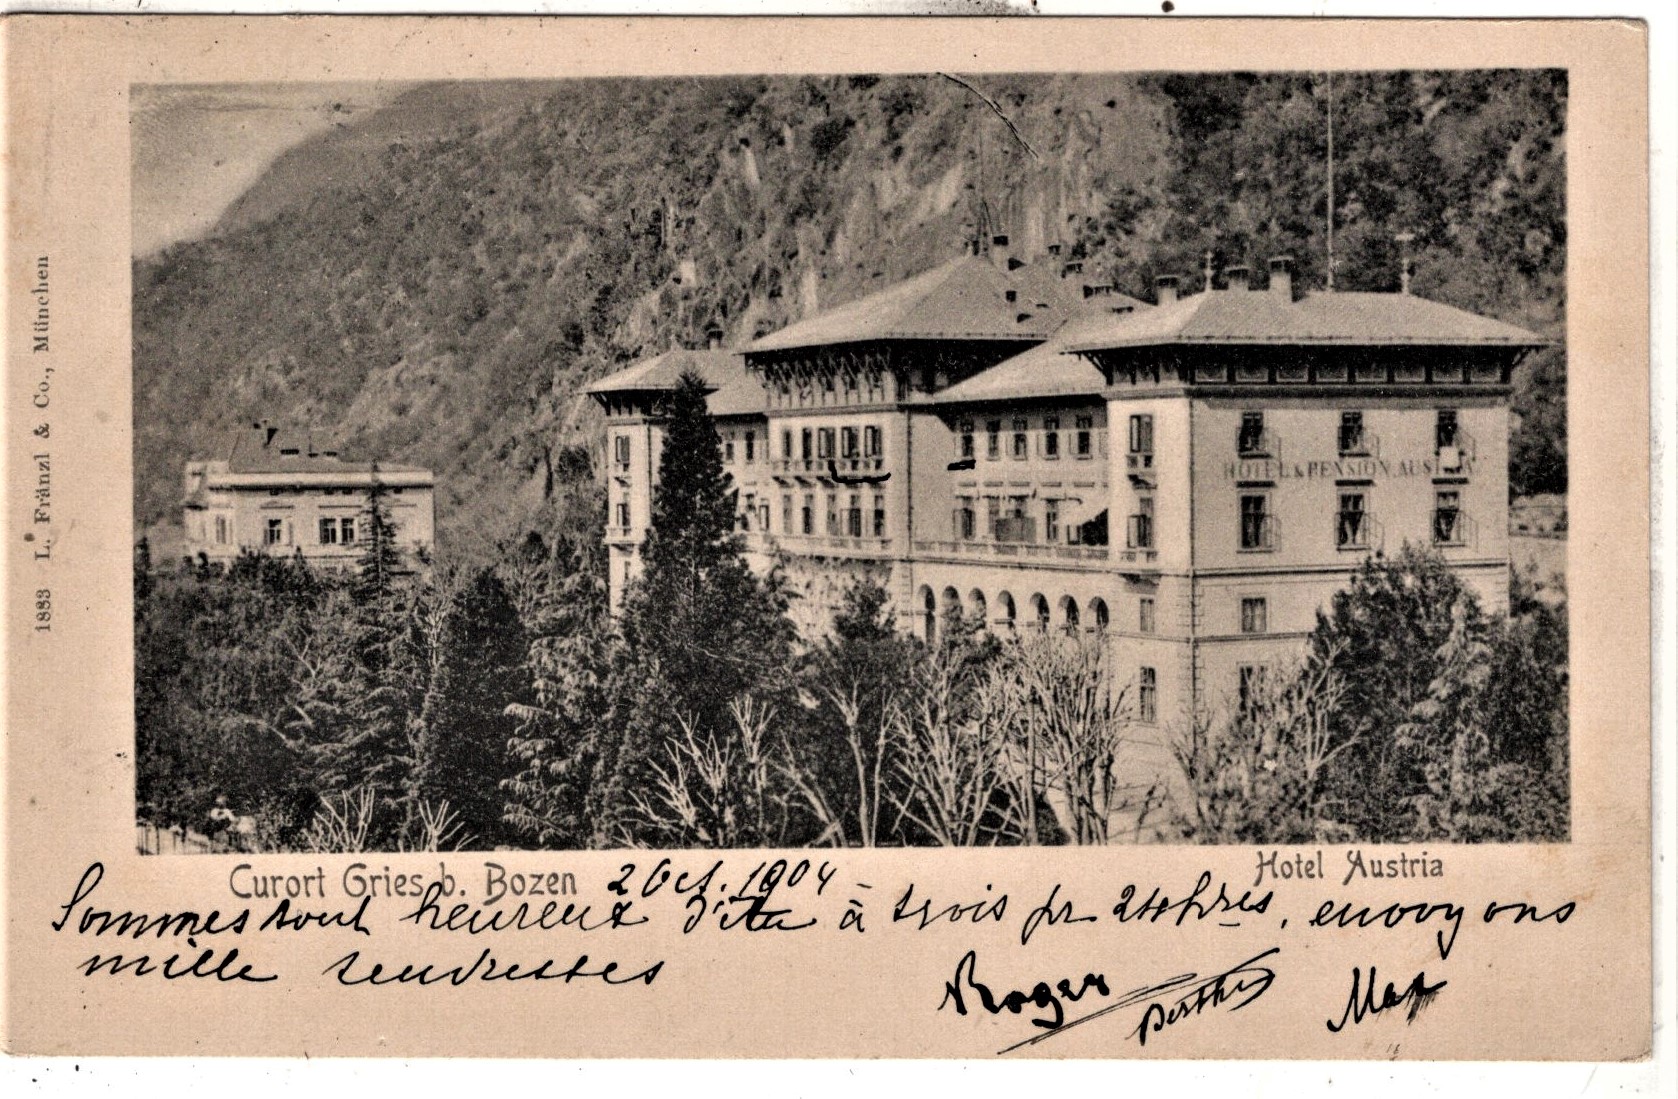 1883 L. Fränzl & Co., München
HOTEL & PENSION AUSTRIA
Curort Gries b. Bozen 2 Oct. 1904
Hotel Austria
Sommes tout heureux d'être à trois pr 24 hres, envoyons
mille tendresses
Roger Berthe Max